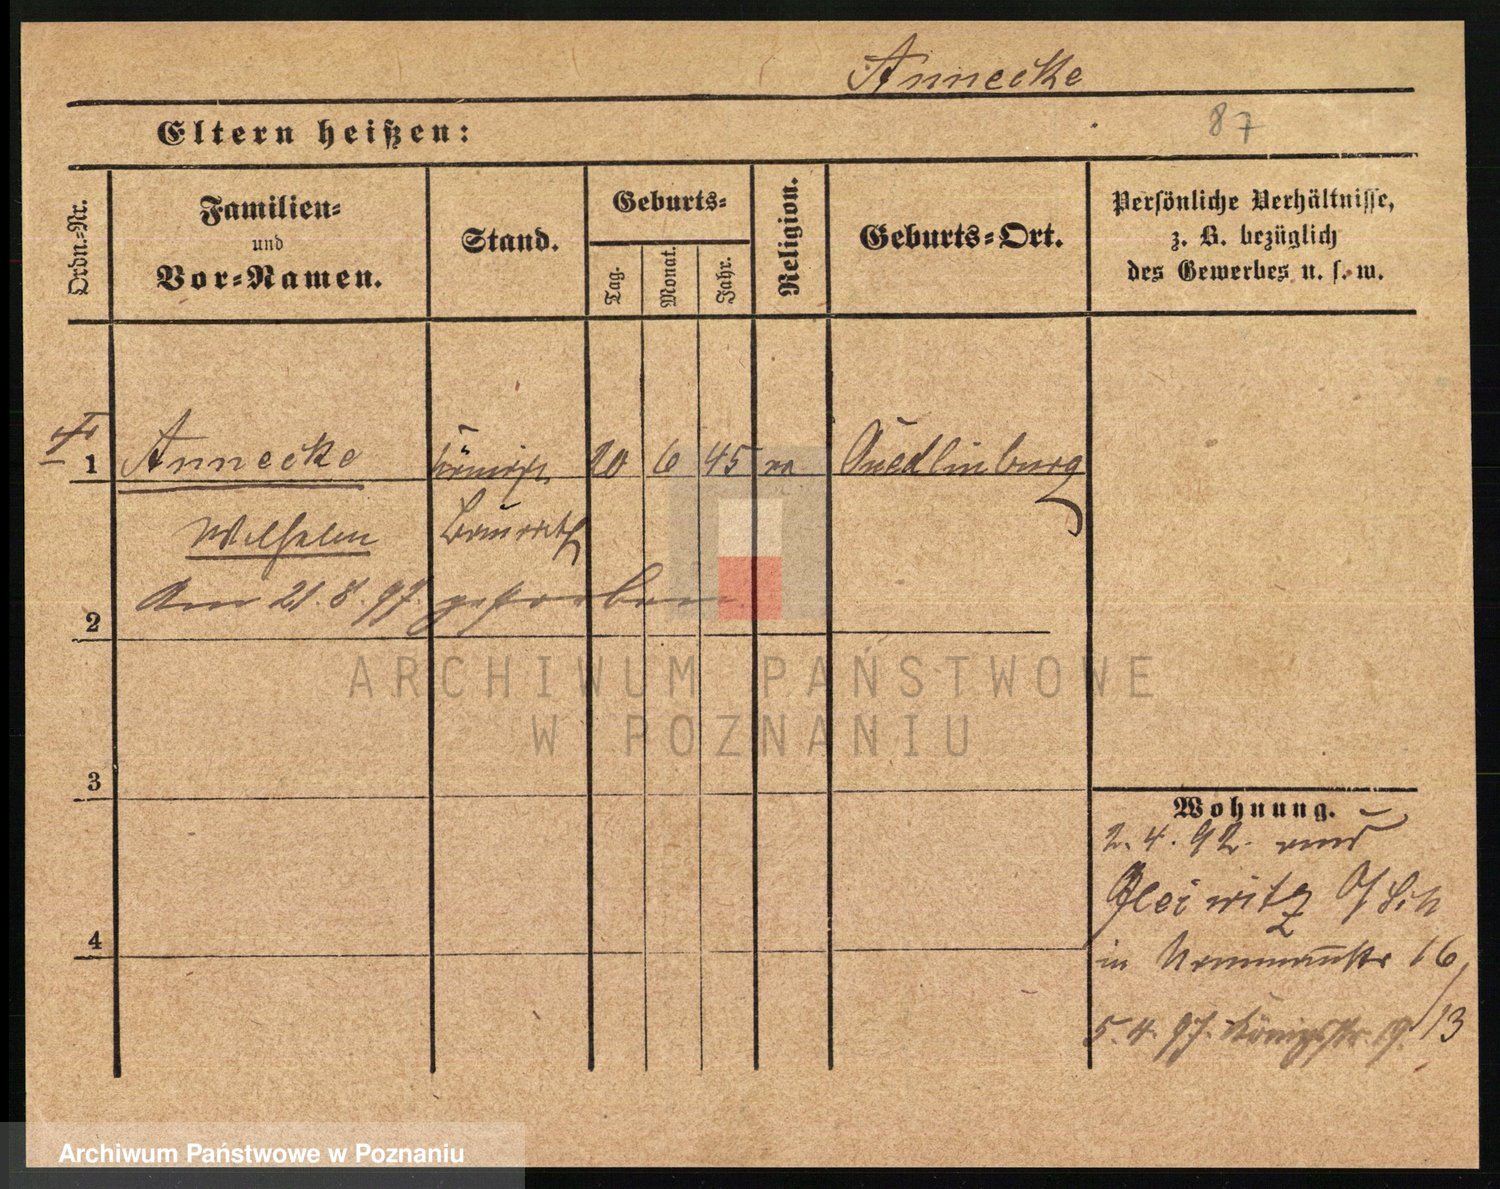 Annecke
87
Eltern heißen:
Ordn.-Nr.
Familien-
und
Vor-Namen.
Stand.
Geburts-
Tag.
Monat.
Jahr.
Religion.
Geburts-Ort.
Persönliche Verhältnisse,
z. B. bezüglich
des Gewerbes u. s. w.
1 Annecke königl. 20 6 45 Quedlinburg
Wilhelm Baurath
Am 21.8.97. gestorben.
2
ARCHIWUM PAŃSTWOWE
W POZNANIU
3
Wohnung.
2.4.92. aus
Gleiwitz O/Sch
4
in 16/13
5.4.97. Königstr. 19.
Archiwum Państwowe w Poznaniu